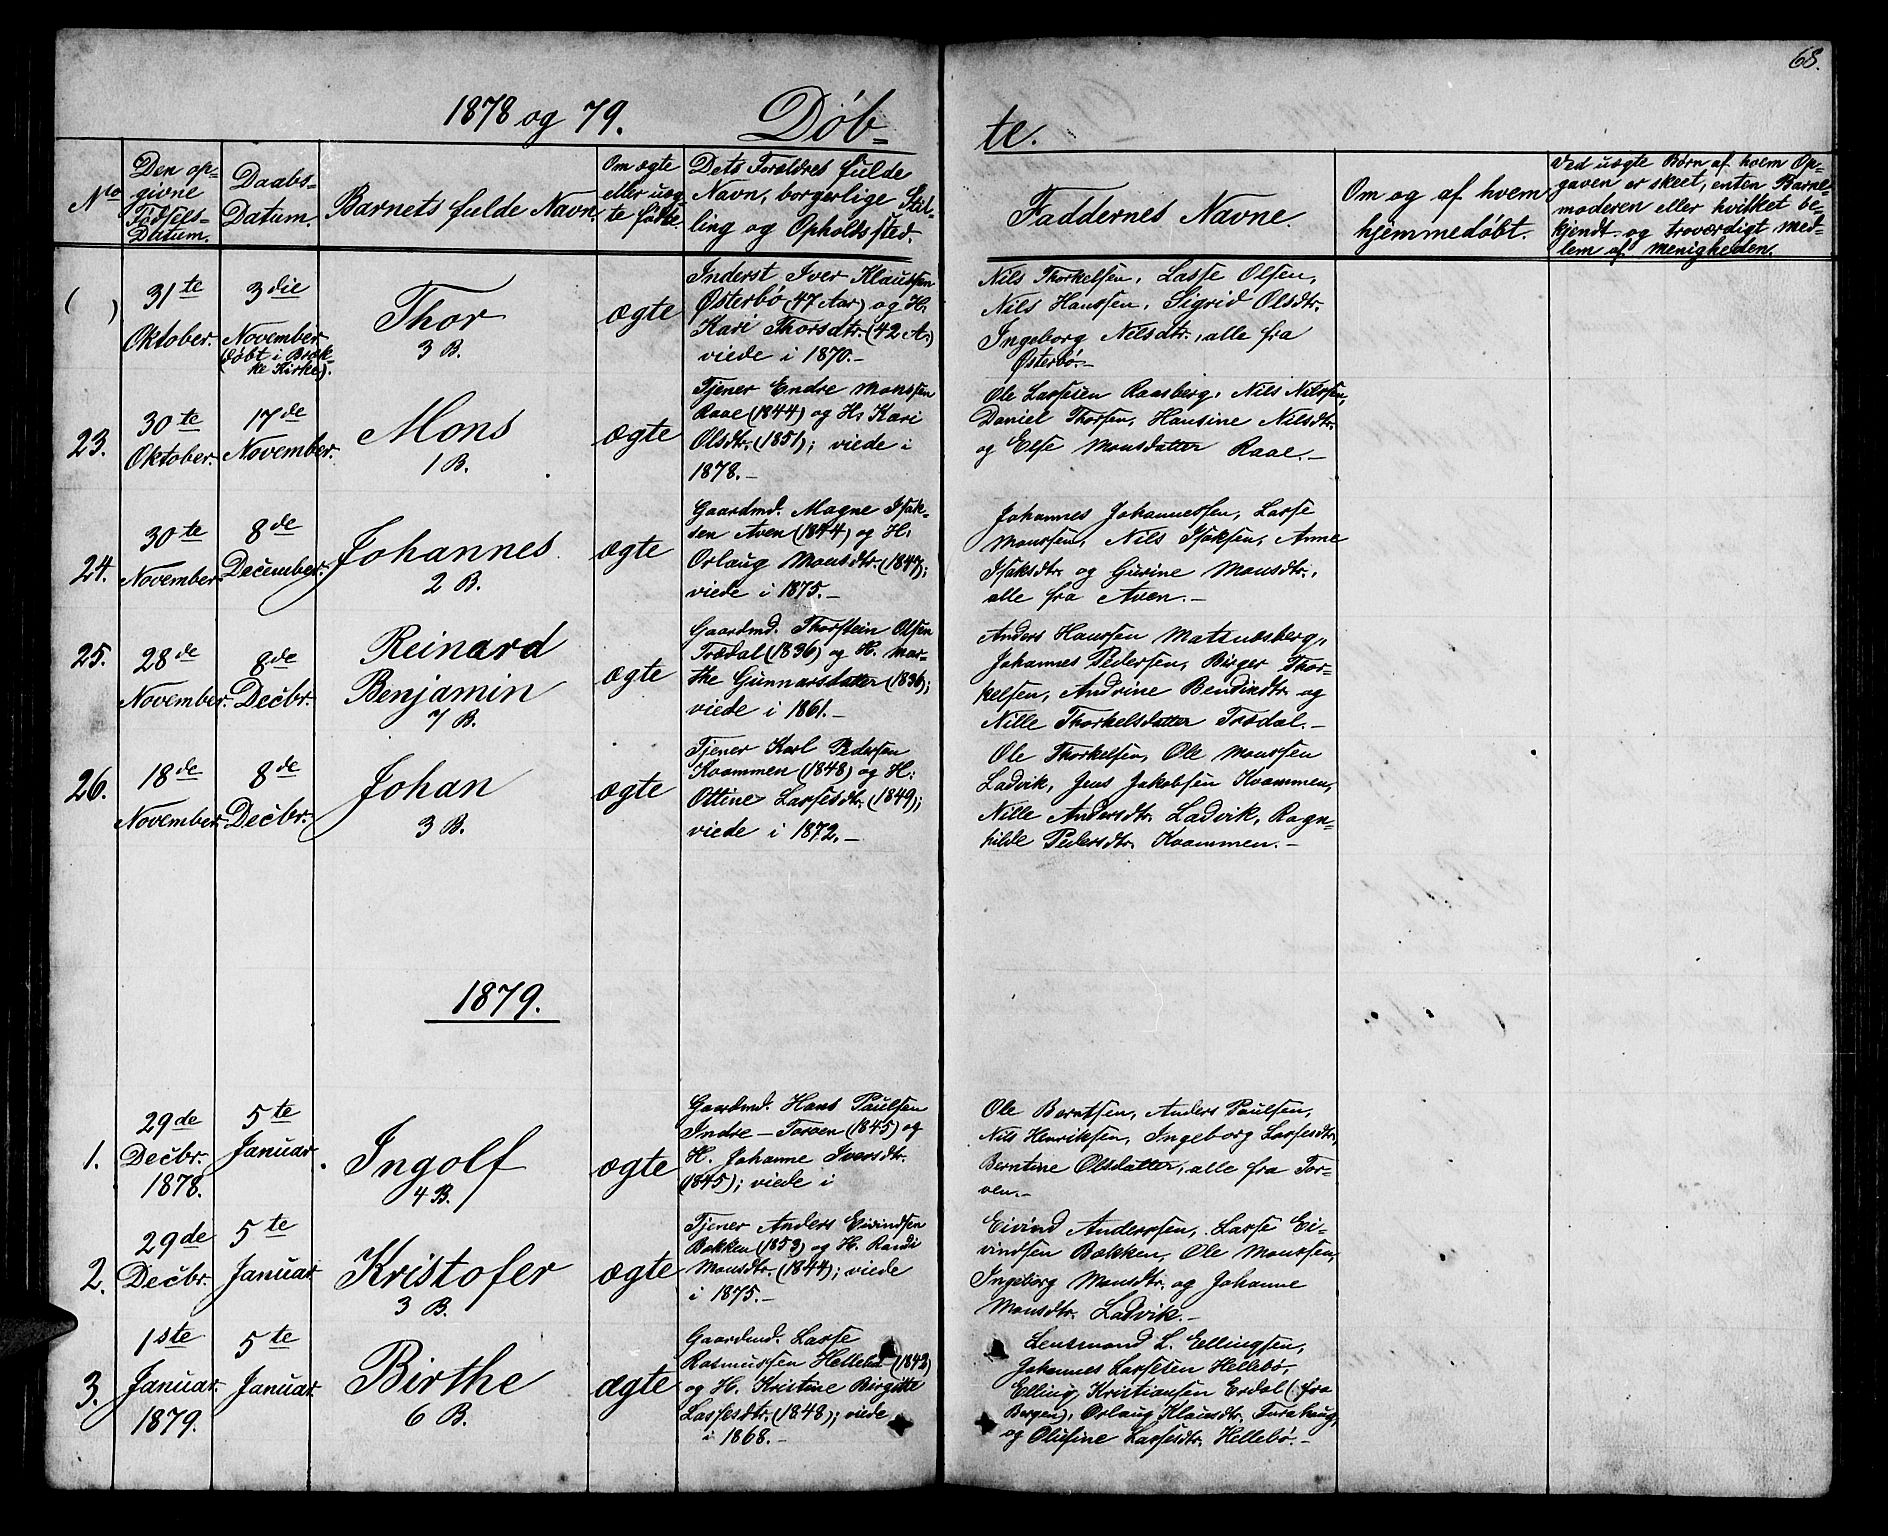 68.
1878 og 79. Døb=
te.
No
Den op=
givne
Fødsels=
Datum.
Daabs=
Datum.
Barnets fulde Navn.
Om ægte
eller uæg=
te født.
Dets Forældres fulde
Navn, borgerlige Stil=
ling og Opholdssted.
Faddernes Navne.
Om og af hvem
hjemmedøbt.
Ved uægte Børn af hvem Op=
gaven er skeet, enten Barne=
moderen eller hvilket be=
kjendt og troværdigt Med=
lem af Menigheden.
( )
31te
Oktober.
3die
November
(døbt i Bræk=
ke Kirke).
Thor
3 B.
ægte
Inderst Iver Klaussen
Østerbø (47 Aar) og H.
Kari Thorsdtr. (42 A.)
viede i 1870.-
Nils Thorkelsen, Lasse Olsen,
Nils Hanssen, Sigrid Olsdtr.
Ingeborg Nilsdtr., alle fra
Østerbø.-
23.
30te
Oktober.
17de
November.
Mons
1 B.
ægte
Tjener Endre Monssen
Raae (1844) og H. Kari
Olsdtr. (1851); viede i
1878.-
Ole Lassesen Raasberg, Nils Nilssen,
Daniel Thorsen, Hansine Nilsdtr.
og Else Monsdatter Raae.-
24.
30te
November.
8de
December.
Johannes.
2 B.
ægte
Gaardmd. Magne Isak=
sen Aven (1844) og H.
Orlaug Monsdtr. (1847);
viede i 1875.-
Johannes Johannessen, Lasse
Monssen, Nils Isaksen, Anne
Isaksdtr. og Gurine Monsdtr.,
alle fra Aven.-
25.
28de
November.
8de
Decbr.
Reinard
Benjamin
7 B.
ægte
Gaardmd. Thorstein Olsen
Trædal (1836) og H. Mar=
the Gunnarsdatter (1836);
viede i 1861.-
Anders Hanssen Matnæsberg,
Johannes Pedersen, Birger Thor=
kelsen, Andrine Bendixdtr. og
Nille Thorkelsdatter Trædal.-
26.
18de
November.
8de
Decbr.
Johan
3 B.
ægte
Tjener Karl Pedersen
Kvammen (1848) og H.
Ottine Lassesdtr. (1849);
viede i 1872.-
Ole Thorkelsen, Ole Monssen
Ladvik, Jens Jakobsen Kvammen,
Nille Andersdtr. Ladvik, Ragn=
hilde Pedersdtr. Kvammen.-
1879.
1.
29de
Decbr.
1878.
5te
Januar.
Ingolf
4 B.
ægte
Gaardmd. Hans Paulsen
Indre-Torven (1845) og
H. Johanne Iversdtr.
(1845); viede i
Ole Berntsen, Anders Paulsen,
Nils Henriksen, Ingeborg Lassesdtr.,
Berntine Olsdatter, alle fra Tor=
ven.-
2.
29de
Decbr.
5te
Januar.
Kristofer
3 B.
ægte
Tjener Anders Eivindsen
Bakken (1853) og H. Randi
Monsdtr. (1844); viede
i 1875.-
Eivind Anderssen, Lasse Ei=
vindsen Bakken, Ole Monssen,
Ingeborg Monsdtr. og Johanne
Monsdtr. Ladvik.-
3.
1ste
Januar
1879.
5te
Januar.
Birthe
6 B.
ægte
Gaardmd. Lasse
Rasmussen Hellebø (1842)
og H. Kristine Birgitte
Lassesdtr. (1848); viede
i 1868.-
Lensmand L. Ellingsen,
Johannes Lassesen Hellebø,
Elling Kristiansen Erdal (fra
Bergen), Orlaug Klausdtr. Furehaug,
og Olufine Lassesdtr. Hellebø.-